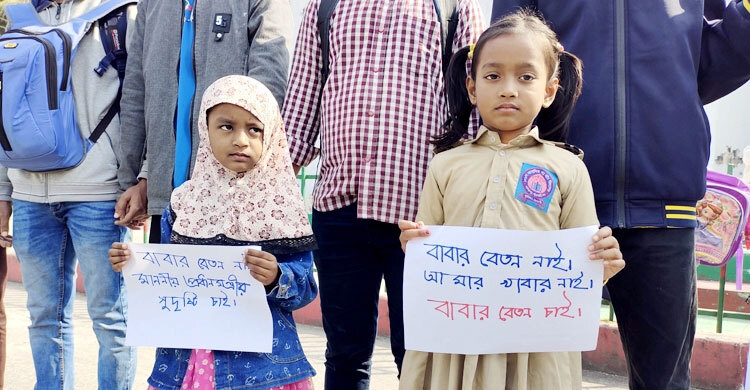 বাবার বেতন না
মাননীয় প্রধানমন্ত্রীর
সুদৃষ্টি চাই।
বাবার বেতন নাই।
আমার খাবার নাই।
বাবার বেতন চাই।